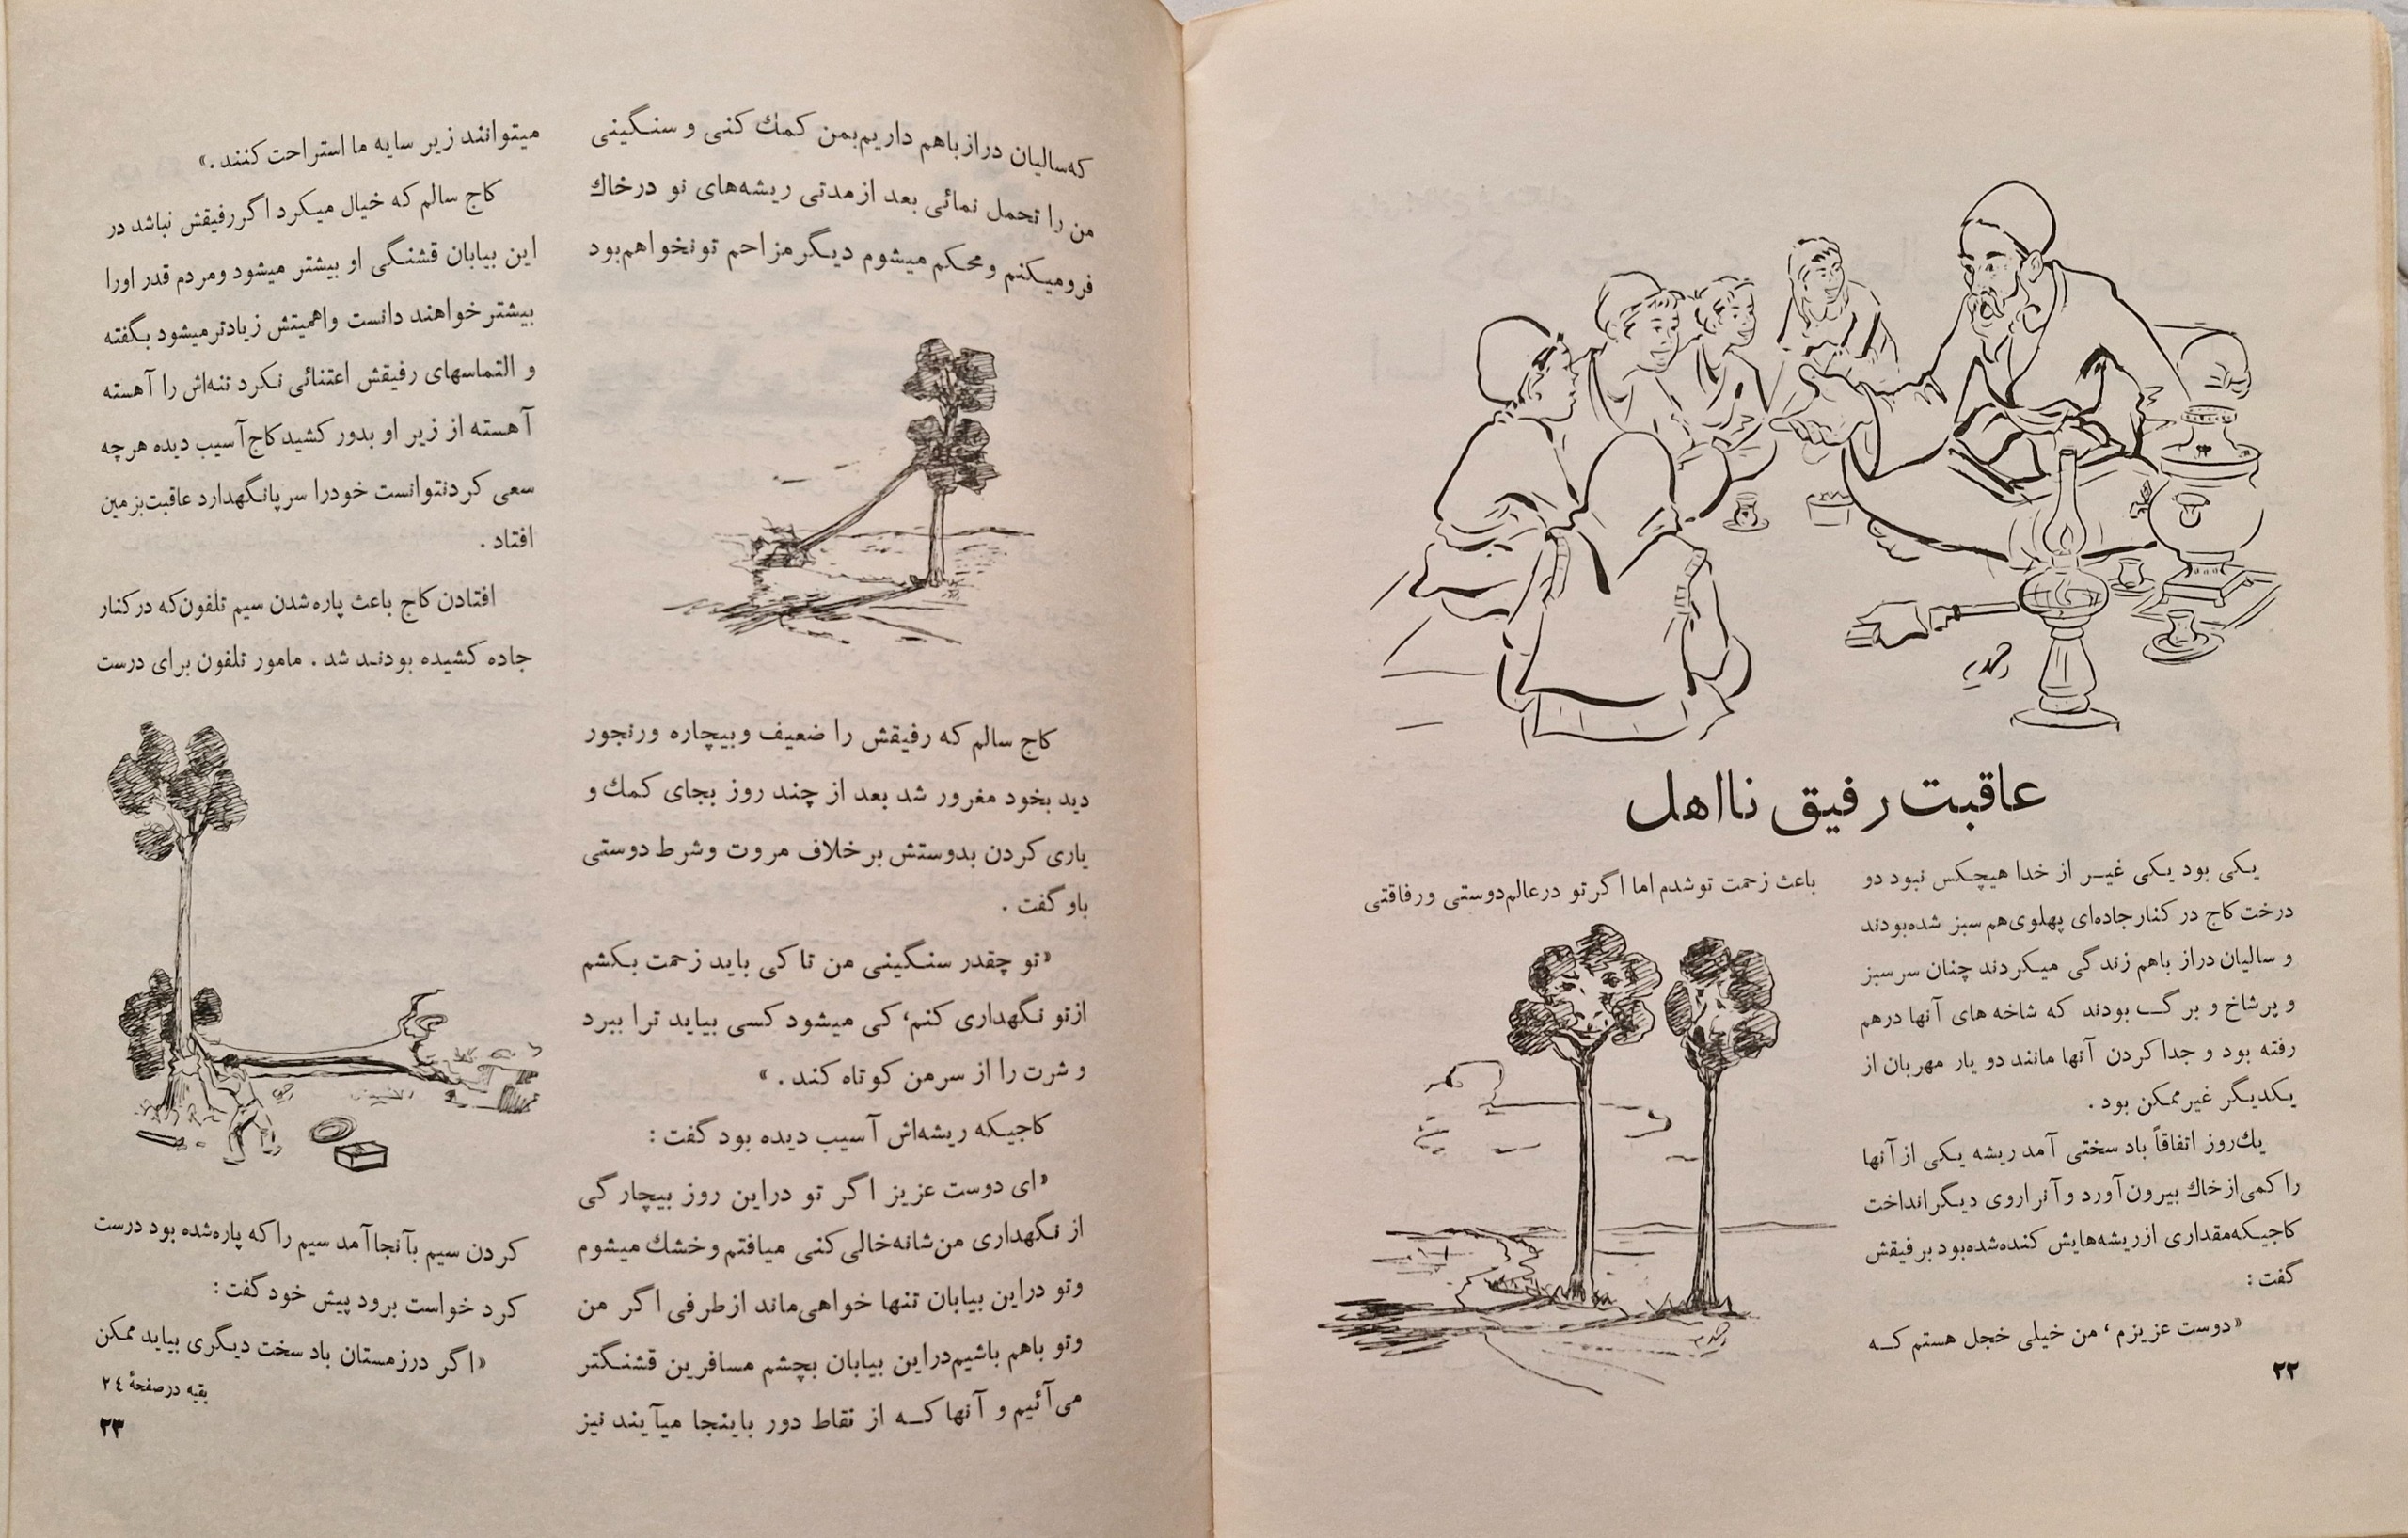 عاقبت رفیق نااهل
یکی بود یکی غیر از خدا هیچکس نبود دو
درخت کاج در کنار جاده‌ای پهلوی‌هم سبز شده‌بودند
و سالیان دراز باهم زندگی میکردند چنان سرسبز
و پرشاخ و برگ بودند که شاخه های آنها درهم
رفته بود و جداکردن آنها مانند دو یار مهربان از
یکدیگر غیرممکن بود .
یك‌روز اتفاقاً باد سختی آمد ریشه یکی از آنها
را کمی‌از خاك بیرون‌آورد و آنرا روی دیگر انداخت
کاجیکه‌مقداری از ریشه‌هایش کنده‌شده‌بود برفیقش
گفت :
«دوست عزیزم ، من خیلی خجل هستم که
۲۲
باعث زحمت توشدم اما اگر تو درعالم‌دوستی ورفاقتی
که‌سالیان درازباهم داریم‌بمن کمك کنی و سنگینی
من را تحمل نمائی بعد ازمدتی ریشه‌های نو درخاك
فرومیکنم ومحکم میشوم دیگرمزاحم تونخواهم‌بود
کاج سالم که رفیقش را ضعیف وبیچاره ورنجور
دید بخود مغرور شد بعد از چند روز بجای کمك و
یاری کردن بدوستش برخلاف مروت وشرط دوستی
باو گفت .
«تو چقدر سنگینی من تا کی باید زحمت بکشم
ازتو نگهداری کنم، کی میشود کسی بیاید ترا ببرد
و شرت را از سرمن کوتاه کند . »
کاجیکه ریشه‌اش آسیب دیده بود گفت :
«ای دوست عزیز اگر تو دراین روز بیچارگی
از نگهداری من‌شانه‌خالی کنی میافتم وخشك میشوم
وتو دراین بیابان تنها خواهی‌ماند ازطرفی اگر من
وتو باهم باشیم‌دراین بیابان بچشم مسافرین قشنگتر
می‌آئیم و آنها که از نقاط دور باینجا میآیند نیز
میتوانند زیر سایه ما استراحت کنند .»
کاج سالم که خیال میکرد اگررفیقش نباشد در
این بیابان قشنگی او بیشتر میشود ومردم قدر اورا
بیشترخواهند دانست واهمیتش زیادترمیشود بگفته
و التماسهای رفیقش اعتنائی نکرد تنه‌اش را آهسته
آهسته از زیر او بدور کشیدکاج‌آسیب دیده هرچه
سعی کردنتوانست خودرا سرپانگهدارد عاقبت‌بزمین
افتاد .
افتادن کاج باعث پاره‌شدن سیم تلفون‌که درکنار
جاده کشیده بودند شد . مامور تلفون برای درست
کردن سیم بآنجاآمد سیم راکه پاره‌شده بود درست
کرد خواست برود پیش خود گفت :
«اگر درزمستان باد سخت دیگری بیاید ممکن
بقیه درصفحهٔ ۲۴
۲۳